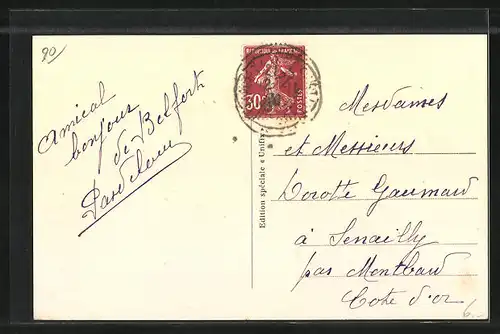 20
Amical
bonjour
de Belfort
REPUBLIQUE FRANCAISE
30c
POSTES
Edition spéciale « Unifix »
Mesdames
et Messieurs
Dorotte Gaumard
à Senailly
par Montbard
Cote d'or
6.-